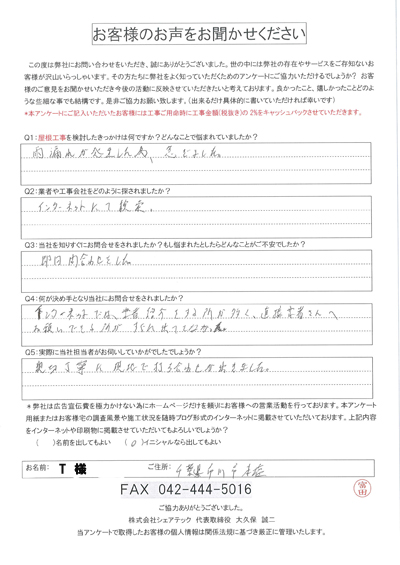 お客様のお声をお聞かせください
この度は弊社にお問い合わせをいただき、誠にありがとうございました。世の中には弊社の存在やサービスをご存知ないお
客様が沢山いらっしゃいます。その方たちに弊社をよく知っていただくためのアンケートにご協力いただけるでしょうか？ お客
様のご意見をお聞かせいただき今後の活動に反映させていただきたいと考えております。良かったこと、嬉しかったことどのよ
うな些細な事でも結構です。是非ご協力お願い致します。（出来るだけ具体的に書いていただければ幸いです）
*本アンケートにご記入いただいたお客様には工事ご用命時に工事金額(税抜き)の 2%をキャッシュバックさせていただきます。
Q1:屋根工事を検討したきっかけは何ですか？どんなことで悩まれていましたか？
雨漏れが発生した為、急ぎました。
Q2:業者や工事会社をどのように探されましたか？
インターネットにて検索。
Q3:当社を知りすぐにお問合せをされましたか？もし悩まれたとしたらどんなことがご不安でしたか？
即日問合わせをした。
Q4:何が決め手となり当社にお問合せをされましたか？
インターネットでは、業者紹介をする所が多く、直接業者さんへ
お願いできる所が
Q5:実際に当社担当者がお伺いしていかがでしたでしょうか？
親切丁寧に現地で打ち合わせが出来ました。
*弊社は広告宣伝費を極力かけない為にホームページだけを頼りにお客様への営業活動を行っております。本アンケート
用紙またはお客様宅の調査風景や施工状況を随時ブログ形式のインターネットに掲載させていただいております。上記内容
をインターネットや印刷物に掲載させていただいてもよろしいでしょうか？
（　）名前を出してもよい　（ ○ ）イニシャルなら出してもよい
お名前： T 様　ご住所： 千葉県市川市
FAX 042-444-5016
富田
ご協力ありがとうございました。
株式会社シェアテック 代表取締役 大久保 誠二
当アンケートで取得したお客様の個人情報は関係法規に基づき厳正に管理いたします。